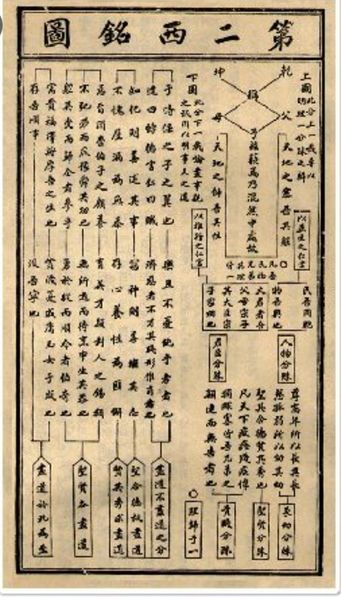 第二西銘圖
上圖
此分上一截專以
明理一分殊之辨
乾
父
坤
母
稱
天地之塞吾其體
予茲藐焉乃混然中處故
天地之帥吾其性
下圖
此分下一截論盡事親
之誠因以明事天之道
以並生之仁言
以推行之仁言
民吾同胞
物吾與也
大君者吾
父母宗子
其大臣宗
子家相也
人物分殊
君臣分殊
尊高年所以長其長
慈孤弱所以幼其幼
聖其合德賢其秀也
凡天下疲癃殘疾惸
獨鰥寡皆吾兄弟之
顛連而無告者也
長幼分殊
聖賢分殊
貴賤分殊
理歸于一
于時保之子之翼也
樂且不憂純乎孝者也
違曰悖德害仁曰賊
濟惡者不才其踐形惟肖者也
知化則善述其事
窮神則善繼其志
不愧屋漏為無忝
存心養性為匪懈
惡旨酒崇伯子之顧養
育英才穎封人之錫類
不弛勞而厎豫舜其功也
無所逃而待烹申生其恭也
體其受而歸全者參乎
勇於從而順令者伯奇也
富貴福澤將厚吾之生也
貧賤憂戚庸玉女于成也
存吾順事
沒吾寧也
盡道不盡道之分
聖合德故盡道
賢其秀求盡道
聖賢各盡道
盡道於此為至